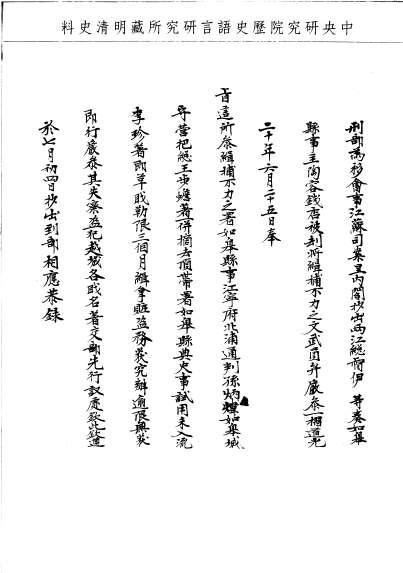 中央研究院歷史語言研究所藏明清史料
刑部為移會事江蘇司案呈內閣抄出兩江總督伊 等奏如皋
縣事主陶容錢店被刦將緝捕不力之文武員弁嚴參一摺道光
二十年六月二十五日奉
旨這所參緝捕不力之署如皋縣事江寧府北浦通判孫炳煒如皋城
守營把總王步蟾著併摘去頂帶署如皋縣典史事試用未入流
李珍著即革職勒限三個月緝拿賍盜務獲究辦逾限無獲
即行嚴參其失察盜犯越城各職名著交部先行議處欽此欽遵
於七月初四日抄出到部相應恭錄